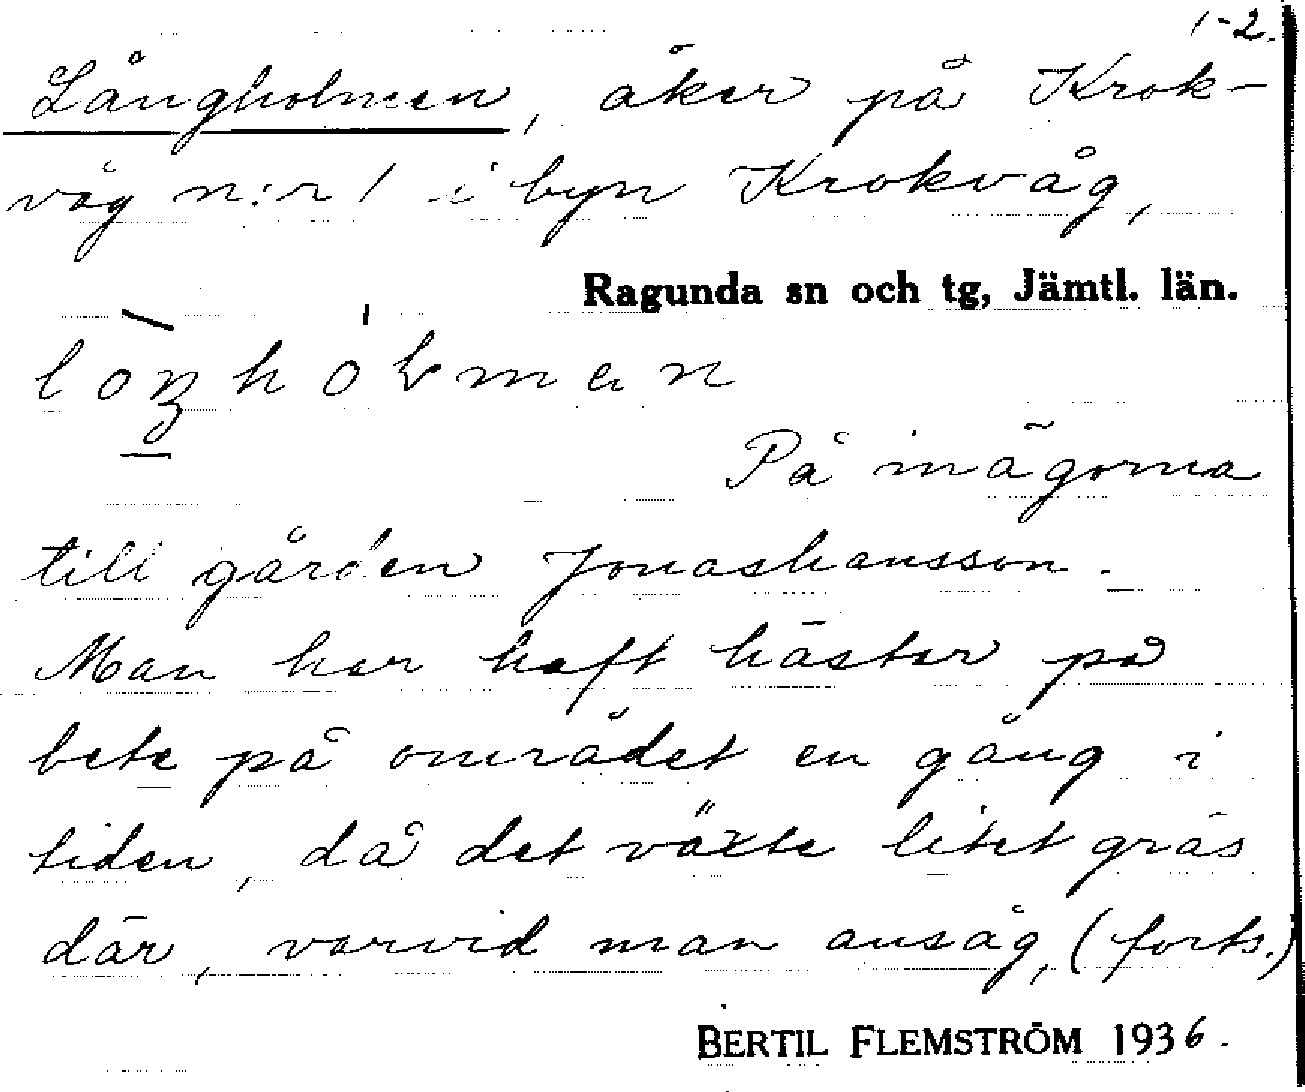 1-2.
Långholmen, åker på Krok-
våg n:r 1 i byn Krokvåg,
Ragunda sn och tg, Jämtl. län.
På inägorna
till gården Jonashansson.
Man har haft hästar på
bete på området en gång i
tiden, då det växte litet gräs
där, varvid man ansåg, (forts.)
BERTIL FLEMSTRÖM 1936.